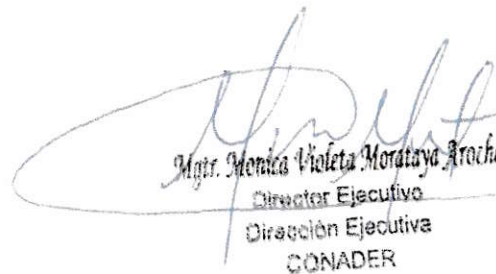 Mgtr. Monica Violeta Morataya Aroche
Director Ejecutivo
Dirección Ejecutiva
CONADER